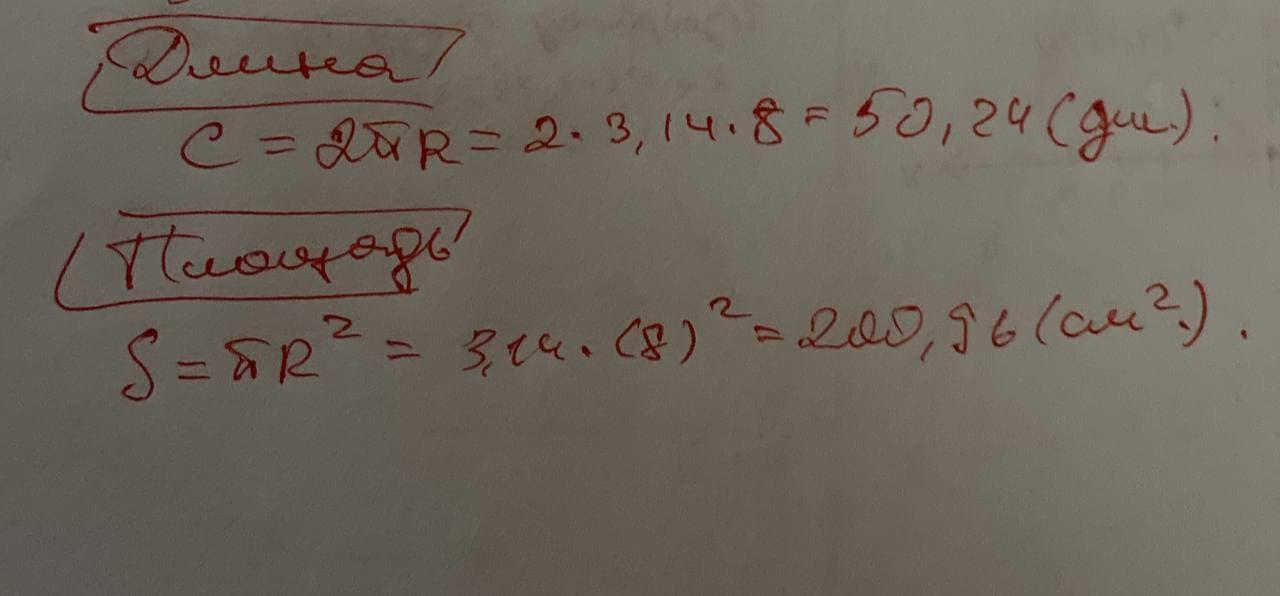 Длина
C = 2πR = 2 · 3,14 · 8 = 50,24 (дм.).
Площадь
S = πR² = 3,14 · (8)² = 200,96 (см².).